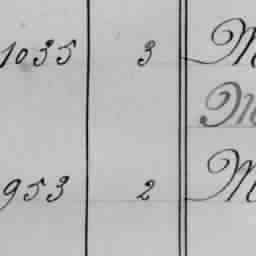 1035 3 M
M
953 2 M